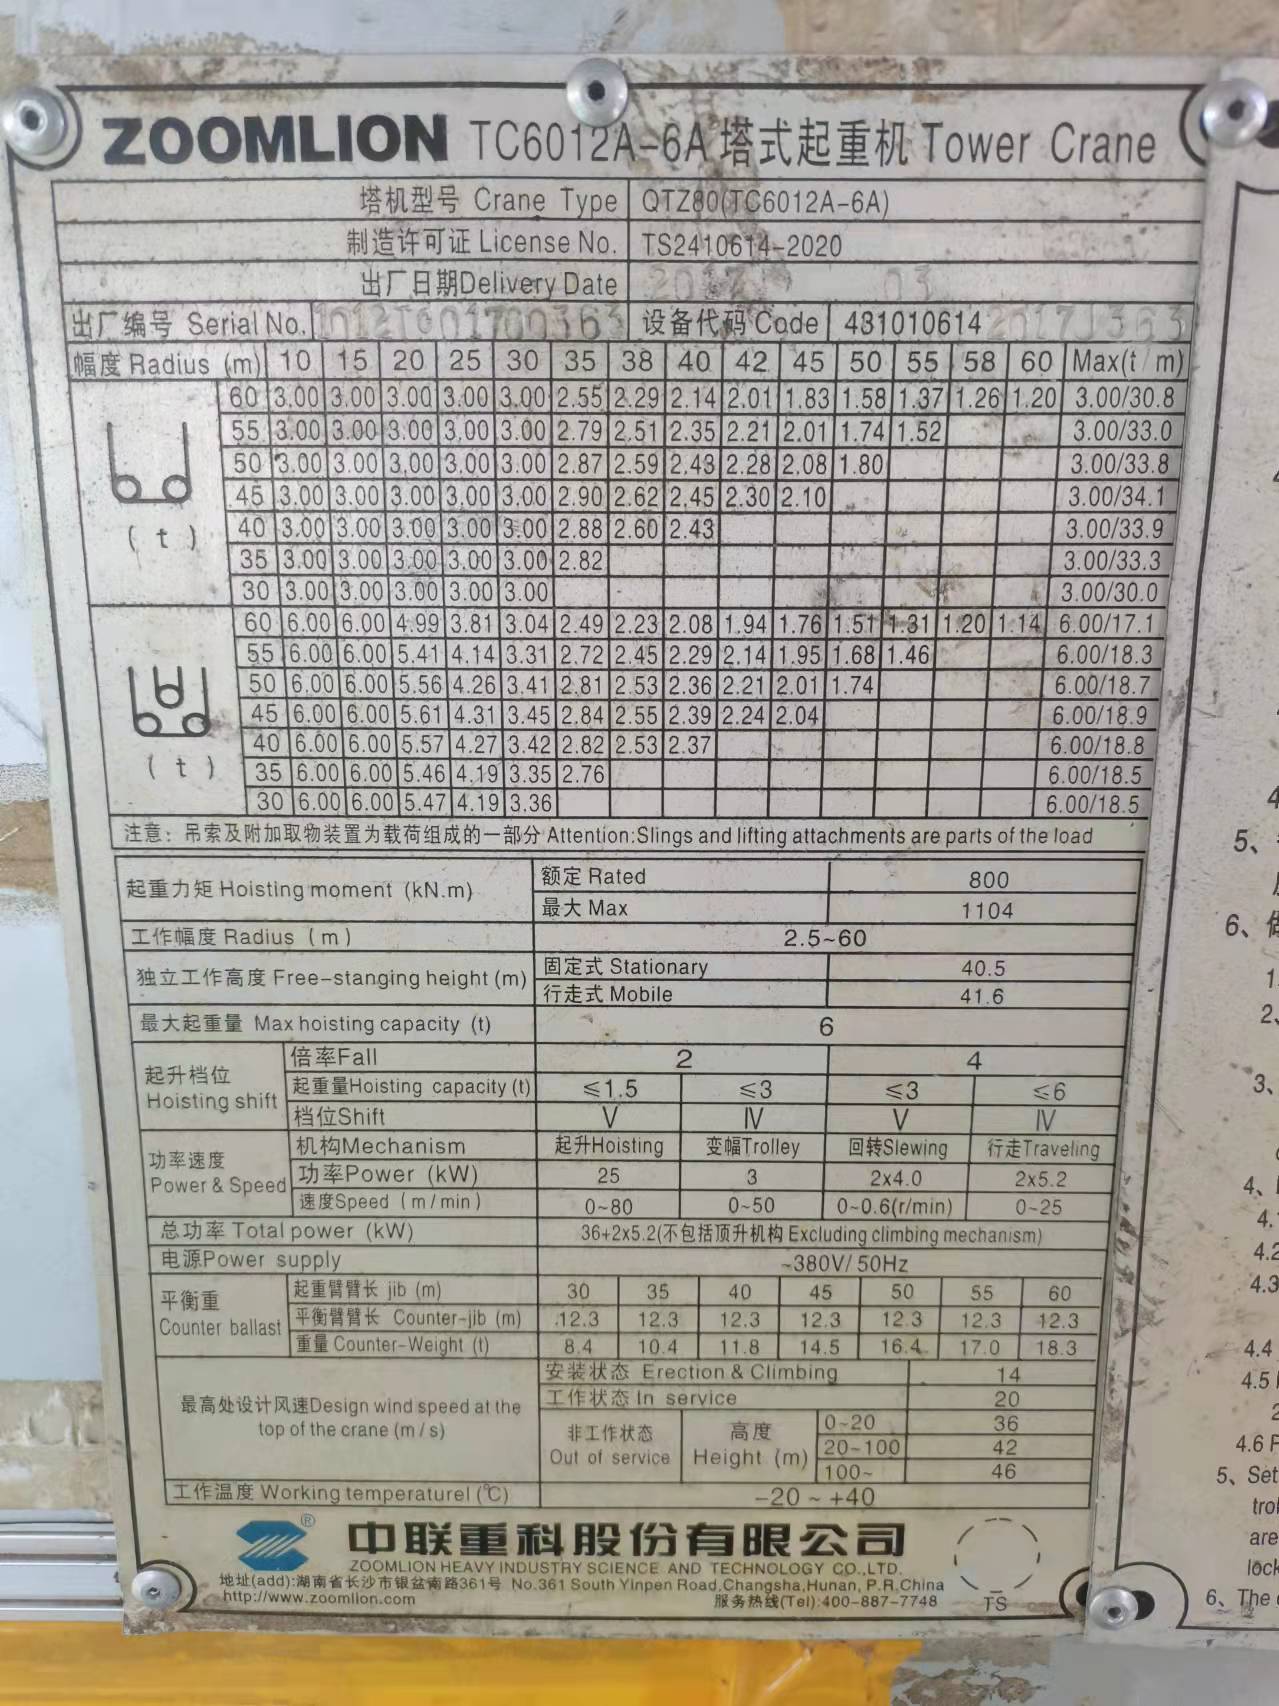 ZOOMLION TC6012A-6A 塔式起重机 Tower Crane
塔机型号 Crane Type QTZ80(TC6012A-6A)
制造许可证 License No. TS2410614-2020
出厂日期Delivery Date 2017 03
出厂编号 Serial No. 1012T601700363 设备代码 Code 431010614 2017J363
幅度 Radius (m) 10 15 20 25 30 35 38 40 42 45 50 55 58 60 Max(t/m)
60 3.00 3.00 3.00 3.00 3.00 2.55 2.29 2.14 2.01 1.83 1.58 1.37 1.26 1.20 3.00/30.8
55 3.00 3.00 3.00 3.00 3.00 2.79 2.51 2.35 2.21 2.01 1.74 1.52 3.00/33.0
50 3.00 3.00 3.00 3.00 3.00 2.87 2.59 2.43 2.28 2.08 1.80 3.00/33.8
45 3.00 3.00 3.00 3.00 3.00 2.90 2.62 2.45 2.30 2.10 3.00/34.1
(t) 40 3.00 3.00 3.00 3.00 3.00 2.88 2.60 2.43 3.00/33.9
35 3.00 3.00 3.00 3.00 3.00 2.82 3.00/33.3
30 3.00 3.00 3.00 3.00 3.00 3.00/30.0
60 6.00 6.00 4.99 3.81 3.04 2.49 2.23 2.08 1.94 1.76 1.51 1.31 1.20 1.14 6.00/17.1
55 6.00 6.00 5.41 4.14 3.31 2.72 2.45 2.29 2.14 1.95 1.68 1.46 6.00/18.3
50 6.00 6.00 5.56 4.26 3.41 2.81 2.53 2.36 2.21 2.01 1.74 6.00/18.7
45 6.00 6.00 5.61 4.31 3.45 2.84 2.55 2.39 2.24 2.04 6.00/18.9
(t) 40 6.00 6.00 5.57 4.27 3.42 2.82 2.53 2.37 6.00/18.8
35 6.00 6.00 5.46 4.19 3.35 2.76 6.00/18.5
30 6.00 6.00 5.47 4.19 3.36 6.00/18.5
注意：吊索及附加取物装置为载荷组成的一部分 Attention:Slings and lifting attachments are parts of the load
起重力矩 Hoisting moment (kN.m) 额定 Rated 800
最大 Max 1104
工作幅度 Radius (m) 2.5~60
独立工作高度 Free-stanging height (m) 固定式 Stationary 40.5
行走式 Mobile 41.6
最大起重量 Max hoisting capacity (t) 6
起升档位 Hoisting shift 倍率Fall 2 4
起重量Hoisting capacity (t) ≤1.5 ≤3 ≤3 ≤6
档位Shift V IV V IV
功率速度 Power & Speed 机构Mechanism 起升Hoisting 变幅Trolley 回转Slewing 行走Traveling
功率Power (kW) 25 3 2x4.0 2x5.2
速度Speed (m/min) 0~80 0~50 0~0.6(r/min) 0~25
总功率 Total power (kW) 36+2x5.2(不包括顶升机构 Excluding climbing mechanism)
电源Power supply ~380V/ 50Hz
平衡重 Counter ballast 起重臂臂长 jib (m) 30 35 40 45 50 55 60
平衡臂臂长 Counter-jib (m) 12.3 12.3 12.3 12.3 12.3 12.3 12.3
重量 Counter-Weight (t) 8.4 10.4 11.8 14.5 16.4 17.0 18.3
最高处设计风速Design wind speed at the top of the crane (m/s) 安装状态 Erection & Climbing 14
工作状态 In service 20
非工作状态 Out of service 高度 Height (m) 0~20 36
20~100 42
100~ 46
工作温度 Working temperaturel (℃) -20 ~ +40
® 中联重科股份有限公司
ZOOMLION HEAVY INDUSTRY SCIENCE AND TECHNOLOGY CO.,LTD.
地址(add):湖南省长沙市银盆南路361号 No.361 South Yinpen Road,Changsha,Hunan, P.R.China
http://www.zoomlion.com 服务热线(Tel):400-887-7748
TS
4
5、
6、
1.
2、
3、
4、
4.1
4.2
4.3
4.4
4.5
4.6
5、Set
are
lock
6、The